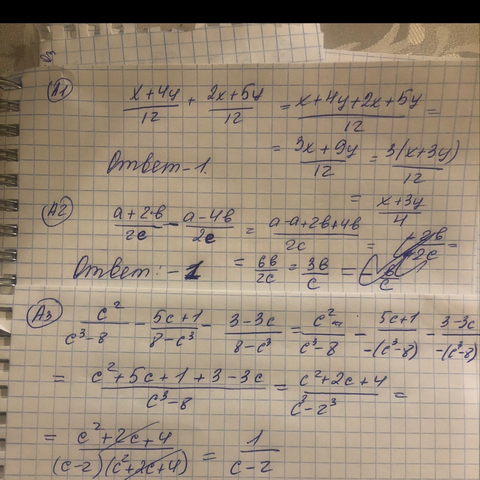 А1
(x+4y)/12 + (2x+5y)/12 = (x+4y+2x+5y)/12 =
= (3x+9y)/12 = 3(x+3y)/12
Ответ - 1.
= (x+3y)/4
А2
(a+2в)/2c - (a-4в)/2c = (a-a+2в+4в)/2c =
Ответ: - 1
= 6в/2c = 3в/c =
А3
c²/(c³-8) - (5c+1)/(8-c³) - (3-3c)/(8-c³) = c²/(c³-8) - (5c+1)/(-(c³-8)) - (3-3c)/(-(c³-8))
= (c²+5c+1+3-3c)/(c³-8) = (c²+2c+4)/(c³-2³) =
= (c²+2c+4)/((c-2)(c²+2c+4)) = 1/(c-2)